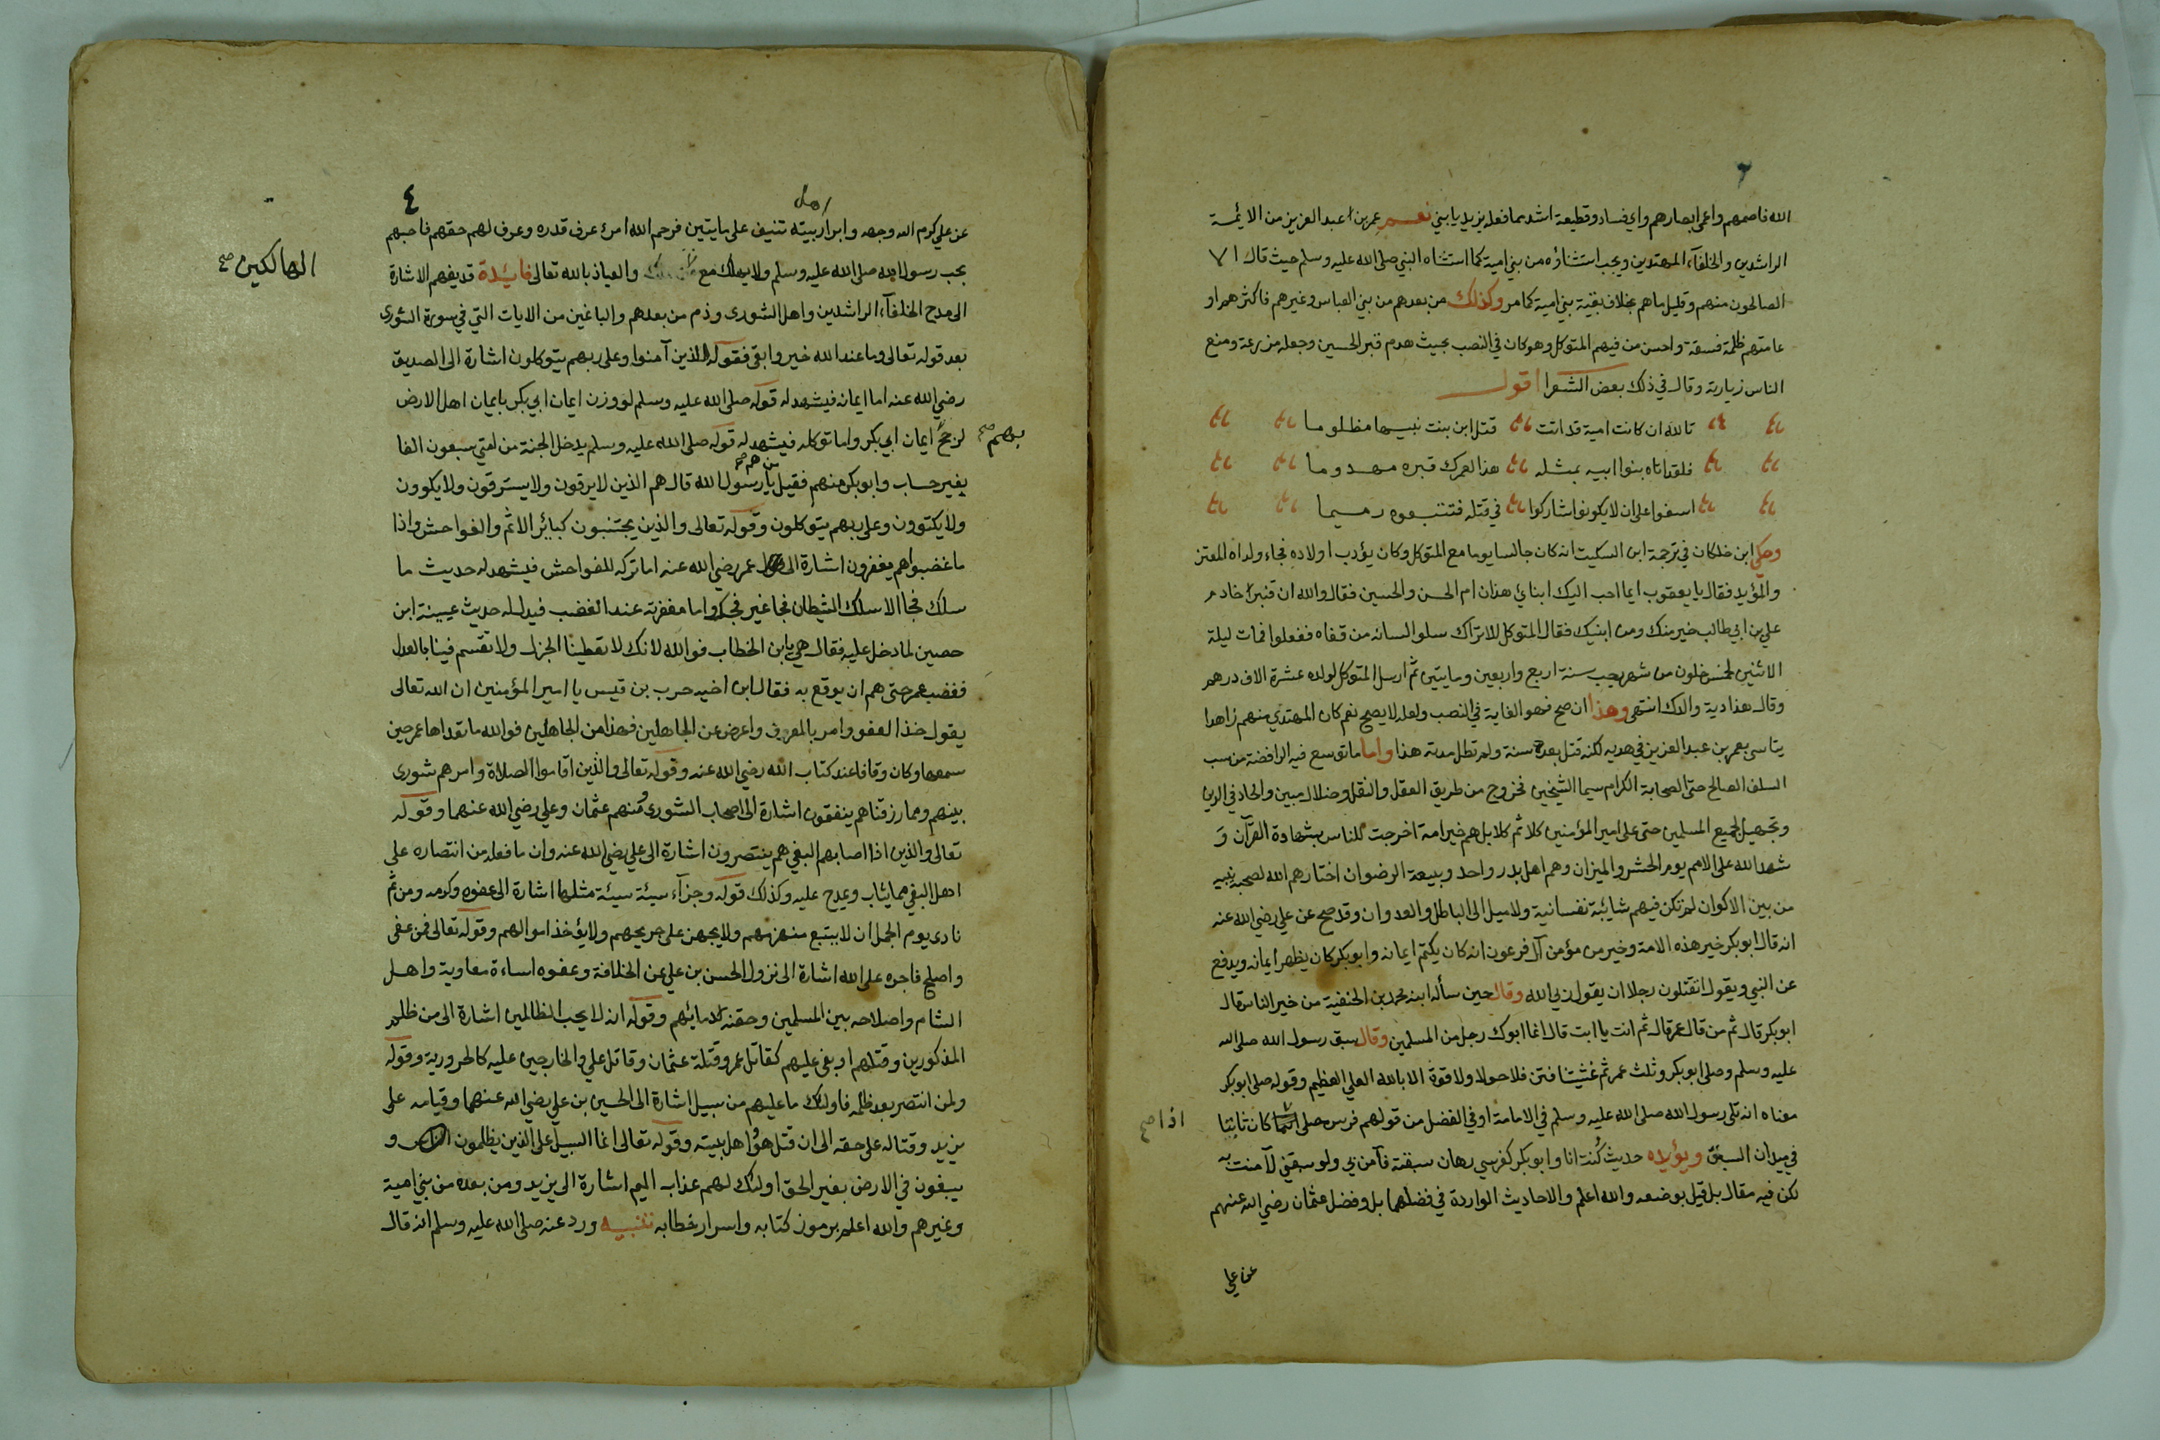 الله فاصمهم واعمى ابصارهم واي فساد وقطيعة اشد مما فعله يزيد يا بني نعم عمر بن عبد العزيز من الايمة
الراشدين والخلفآء المهتدين ويجب استثناؤه من بني امية كما استثناه النبي صلى الله عليه وسلم حيث قال الا
الصالحون منهم وقليل ما هم بخلاف بقية بني امية كما مر وكذلك من بعدهم من بني العباس وغيرهم فاكثرهم او
عامتهم ظلمة فسقة واحسن من فيهم المتوكل وهو كان في النصب بحيث هدم قبر الحسين وجعله مزرعة ومنع
الناس زيارته وقال في ذلك بعض الشعرا اقول
تالله ان كانت امية قد اتت قتل ابن بنت نبيها مظلوما
فلقد اتاه بنوا ابيه بمثله هذا لعمرك قبره مهدوما
اسفوا على ان لا يكونوا شاركوا في قتله فتتبعوه رميما
وحكي ابن خلكان في ترجمة ابن السكيت انه كان جالسا يوما مع المتوكل وكان يؤدب اولاده فجاء ولداه المعتز
والمؤيد فقال يا يعقوب ايما احب اليك ابناي هذان ام الحسن والحسين فقال والله ان قنبرا خادم
علي بن ابي طالب خير منك ومن ابنيك فقال المتوكل للاتراك سلوا لسانه من قفاه ففعلوا فمات ليلة
الاثنين لخمس خلون من شهر رجب سنة اربع واربعين ومايتين ثم ارسل المتوكل لولده عشرة الاف درهم
وقال هذا دية والدك انتهى وهذا ان صح فهو الغاية في النصب ولعله لا يصح نعم كان المهتدي منهم زاهدا
يتاسى بعمر بن عبد العزيز في هديه لكنه قتل بعد سنة ولم تطل مدته هذا واما ما توسع فيه الرافضة من سب
السلف الصالح حتى الصحابة الكرام سيما الشيخين فخروج من طريق العقل والنقل وضلال مبين والحاد في الدين
وتجهيل لجميع المسلمين حتى على امير المؤمنين كلا ثم كلا بل هم خير امة اخرجت للناس بشهادة القرآن و
شهد الله على الامم يوم الحشر والميزان وهم اهل بدر واحد وبيعة الرضوان اختارهم الله لصحبة نبيه
من بين الاكوان لم تكن فيهم شايبة نفسانية ولا ميل الى الباطل والعدوان وقد صح عن علي رضي الله عنه
انه قال ابو بكر خير هذه الامة وخير من مؤمن آل فرعون انه كان يكتم ايمانه وابو بكر كان يظهر ايمانه ويدفع
عن النبي ويقول اتقتلون رجلا ان يقول ربي الله وقال حين سأله ابنه محمد بن الحنفية من خير الناس قال
ابو بكر قال ثم من قال عمر قال ثم انت يا ابت قال انما ابوك رجل من المسلمين وقال سبق رسول الله صلى الله
عليه وسلم وصلى ابو بكر وثلث عمر ثم غشيتنا فتن فلا حول ولا قوة الا بالله العلي العظيم وقوله صلى ابو بكر
معناه انه تلى رسول الله صلى الله عليه وسلم في الامامة او في الفضل من قولهم فرس صلى كان ثانيا
اذا صح
في ميدان السبق ويؤيده حديث كنت انا وابو بكر كفرسي رهان سبقته فآمن بي ولو سبقني لآمنت به
لكن فيه مقال بل قيل بوضعه والله اعلم والاحاديث الواردة في فضلهما بل وفضل عثمان رضي الله عنهم
عن علي
٤
عن علي كرم الله وجهه وابرار بيته تنيف على مايتين فرحم الله امرئ عرف قدره وعرف لهم حقهم فاحبهم
بحب رسول الله صلى الله عليه وسلم ولا يهلك مع والعياذ بالله تعالى فايدة قد يفهم الاشارة
الهالكين صح
الى مدح الخلفآء الراشدين واهل الشورى وذم من بعدهم والباغين من الايات التي في سورة الشورى
بعد قوله تعالى وما عند الله خير وابقى فقوله للذين آمنوا وعلى ربهم يتوكلون اشارة الى الصديق
رضي الله عنه اما ايمانه فيشهد له قوله صلى الله عليه وسلم لو وزن ايمان ابي بكر بايمان اهل الارض
لرجح ايمان ابي بكر واما توكله فيشهد له قوله صلى الله عليه وسلم يدخل الجنة من امتي سبعون الفا
بهم صح
بغير حساب وابو بكر منهم فقيل من هم يا رسول الله قال هم الذين لا يرقون ولا يسترقون ولا يكوون
ولا يكتوون وعلى ربهم يتوكلون وقوله تعالى والذين يجتنبون كبائر الاثم والفواحش واذا
ما غضبوا هم يغفرون اشارة الى عمر رضي الله عنه اما تركه للفواحش فيشهد له حديث ما
سلك فجا الا سلك الشيطان فجا غير فجك واما مغفرته عند الغضب فيدل له حديث عيينة ابن
حصين لما دخل عليه فقال هي يا ابن الخطاب فوالله لانك لا تعطينا الجزل ولا تقسم فينا بالعدل
فغضب عمر حتى هم ان يوقع به فقال ابن اخيه حرب بن قيس يا امير المؤمنين ان الله تعالى
يقول خذ العفو وامر بالمعروف واعرض عن الجاهلين فهذا من الجاهلين فوالله ما تعداها عمر حين
سمعها وكان وقافا عند كتاب الله رضي الله عنه وقوله تعالى والذين اقاموا الصلاة وامرهم شورى
بينهم ومما رزقناهم ينفقون اشارة الى اصحاب الشورى ومنهم عثمان وعلي رضي الله عنهما وقوله
تعالى والذين اذا اصابهم البغي هم ينتصرون اشارة الى علي رضي الله عنه وان ما فعله من انتصاره على
اهل البغي مما يثاب ويمدح عليه وكذلك قوله وجزآء سيئة سيئة مثلها اشارة الى عفوه وكرمه ومن ثم
نادى يوم الجمل ان لا يتبع منهزمهم ولا يجهز على جريحهم ولا يؤخذ اموالهم وقوله تعالى فمن عفى
واصلح فاجره على الله اشارة الى نزول الحسن بن علي عن الخلافة وعفوه اساءة معاوية واهل
الشام واصلاحه بين المسلمين وحقنه لدمائهم وقوله انه لا يحب الظالمين اشارة الى من ظلم
المذكورين وقتلهم او بغى عليهم كقاتل عمر وقتلة عثمان وقاتل علي والخارجين عليه كالحرورية وقوله
ولمن انتصر بعد ظلمه فاولئك ما عليهم من سبيل اشارة الى الحسين بن علي رضي الله عنهما وقيامه على
يزيد وقتاله على حقه الى ان قتل هو واهل بيته وقوله تعالى انما السبيل على الذين يظلمون الناس و
يبغون في الارض بغير الحق اولئك لهم عذاب اليم اشارة الى يزيد ومن بعده من بني امية
وغيرهم والله اعلم برموز كتابه واسرار خطابه تنبيه ورد عنه صلى الله عليه وسلم انه قال